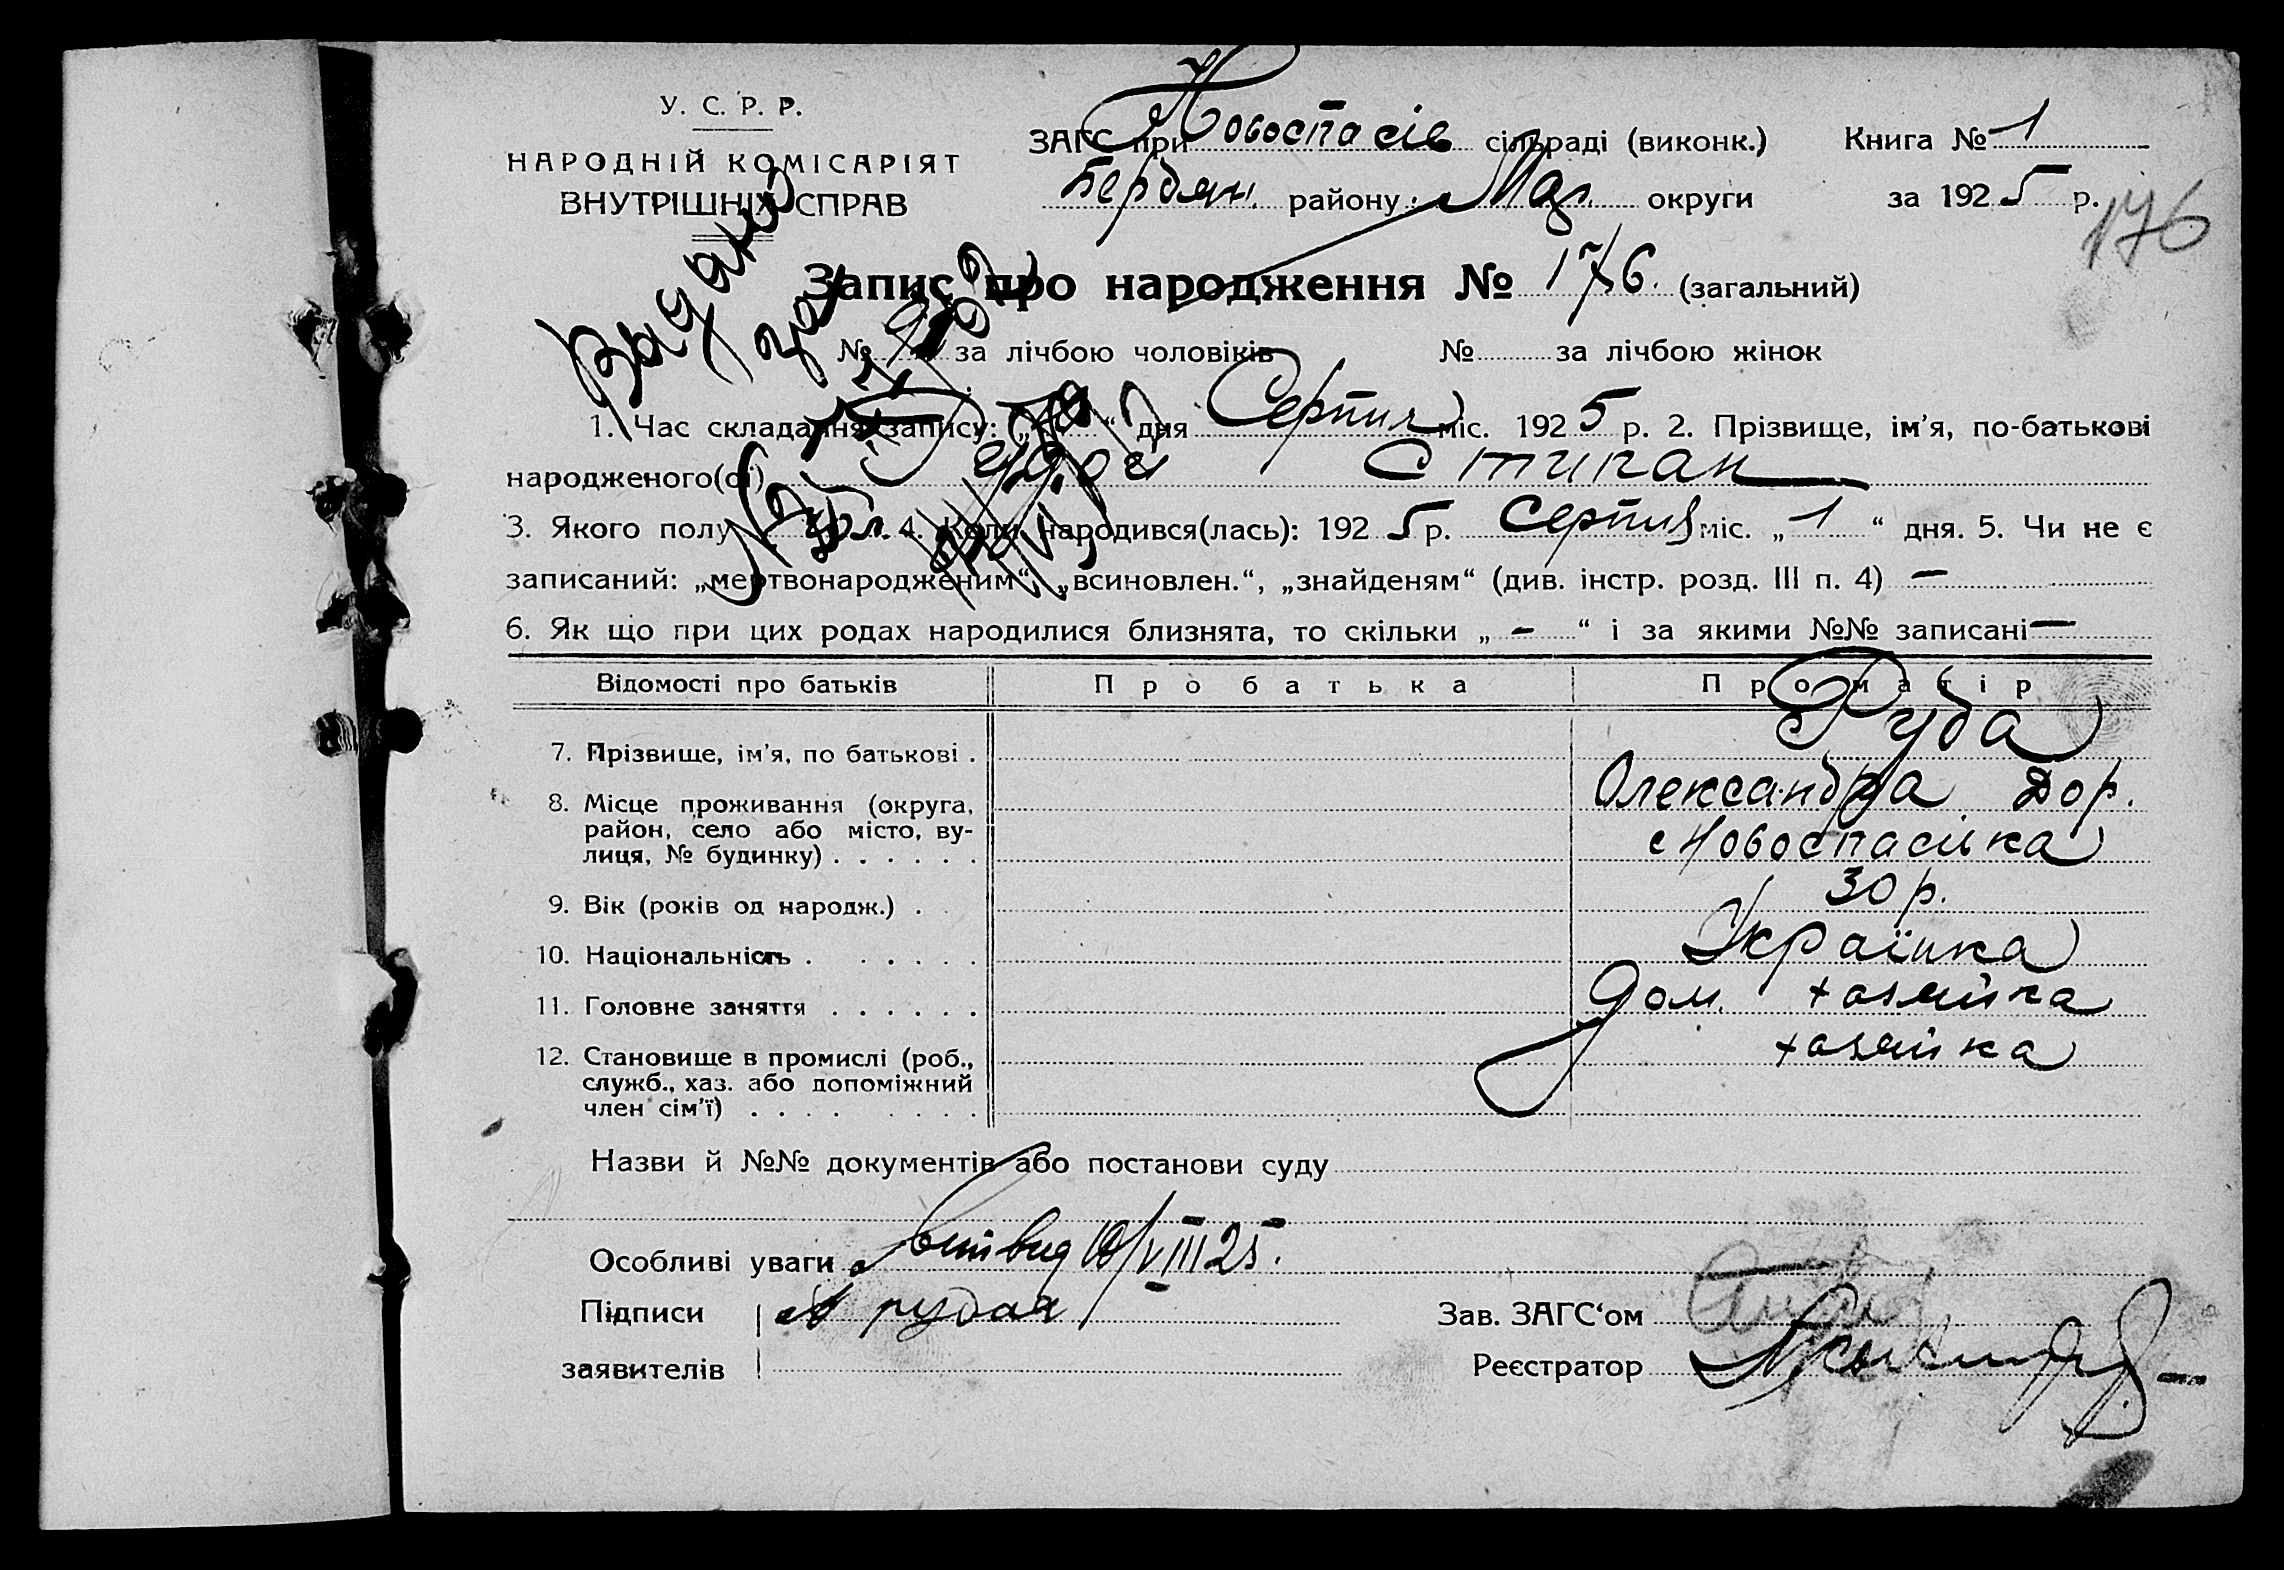 У. С. Р. Р.
НАРОДНІЙ КОМІСАРІЯТ
ВНУТРІШНІХ СПРАВ
ЗАГС при Новоспасів сільраді (виконк.) Книга № 1
Бердян. району Мар. округи за 1925 р.
176
Запис про народження № 176. (загальний)
№ за лічбою чоловіків № за лічбою жінок
Видано
1. Час складання запису: „ “ дня Серпня міс. 1925 р. 2. Прізвище, ім’я, по-батькові
народженого(ої) Стипан
3. Якого полу чол. 4. Коли народився(лась): 1925 р. Серпня міс. „1“ дня. 5. Чи не є
записаний: „мертвонародженим“, „всиновлен.“, „знайденям“ (див. інстр. розд. III п. 4) –
6. Як що при цих родах народилися близнята, то скільки „ – “ і за якими №№ записані –
Відомості про батьків Про батька Про матір
7. Прізвище, ім’я, по батькові . Руба
8. Місце проживання (округа, Олександра Дор.
район, село або місто, ву-
лиця, № будинку) . . . . . . с Новоспасівка
9. Вік (років од народж.) . 30 р.
10. Національність . . . . . . Українка
11. Головне заняття . . . . . . Дом. хозяйка
12. Становище в промислі (роб., хозяйка
служб., хаз. або допоміжний
член сім’ї) . . . . . . . .
Назви й №№ документів або постанови суду
Особливі уваги 10/VIII 25.
Підписи
заявителів
Зав. ЗАГС‘ом
Реєстратор